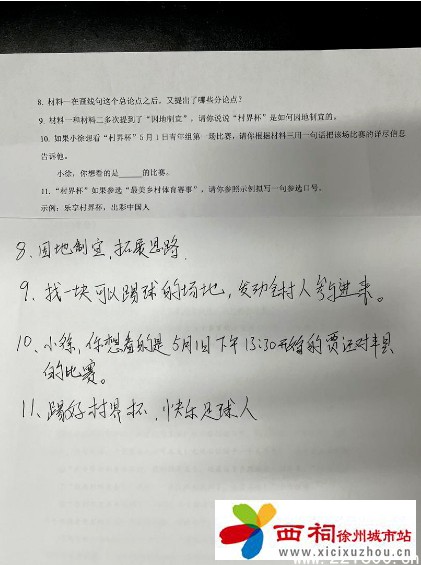 8. 材料一在画线句这个总论点之后，又提出了哪些分论点？
9. 材料一和材料二多次提到了“因地制宜”，请你说说“村界杯”是如何因地制宜的。
10. 如果小徐想看“村界杯”5月1日青年组第一场比赛，请你根据材料三用一句话把该场比赛的详尽信息
告诉他。
小徐，你想看的是______的比赛。
11. “村界杯”如果参选“最美乡村体育赛事”，请你参照示例拟写一句参选口号。
示例：乐享村界杯，出彩中国人
8、因地制宜，拓展思路.
9、找一块可以踢球的场地，发动全村人参与进来。
10、小徐，你想看的是5月1日下午13:30开始的贾汪对丰县
的比赛。
11、踢好村界杯，快乐足球人
西祠徐州城市站
www.xicixuzhou.cn